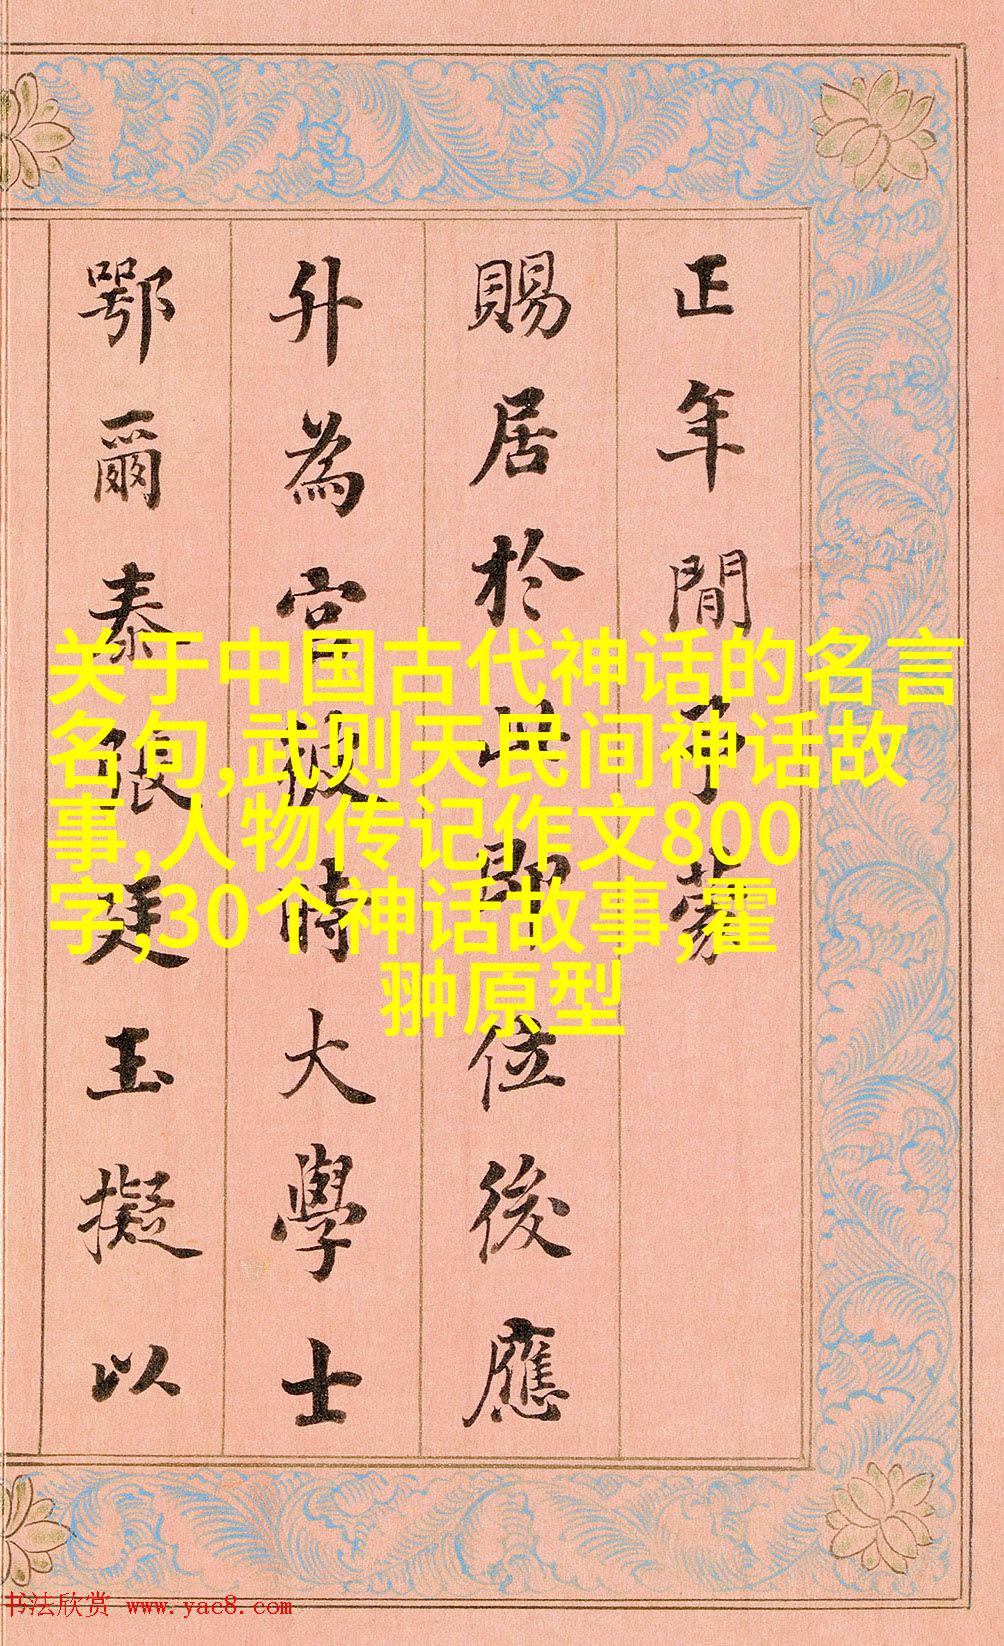 正年間予蒙
賜居於此即位後應
升為宮彼時大學士
鄂爾泰張廷玉擬以
关于中国古代神话的名言
名句,武则天民间神话故
事,人物传记作文800
字,30个神话故事,霍
翀原型
书法欣赏 www.yac8.com